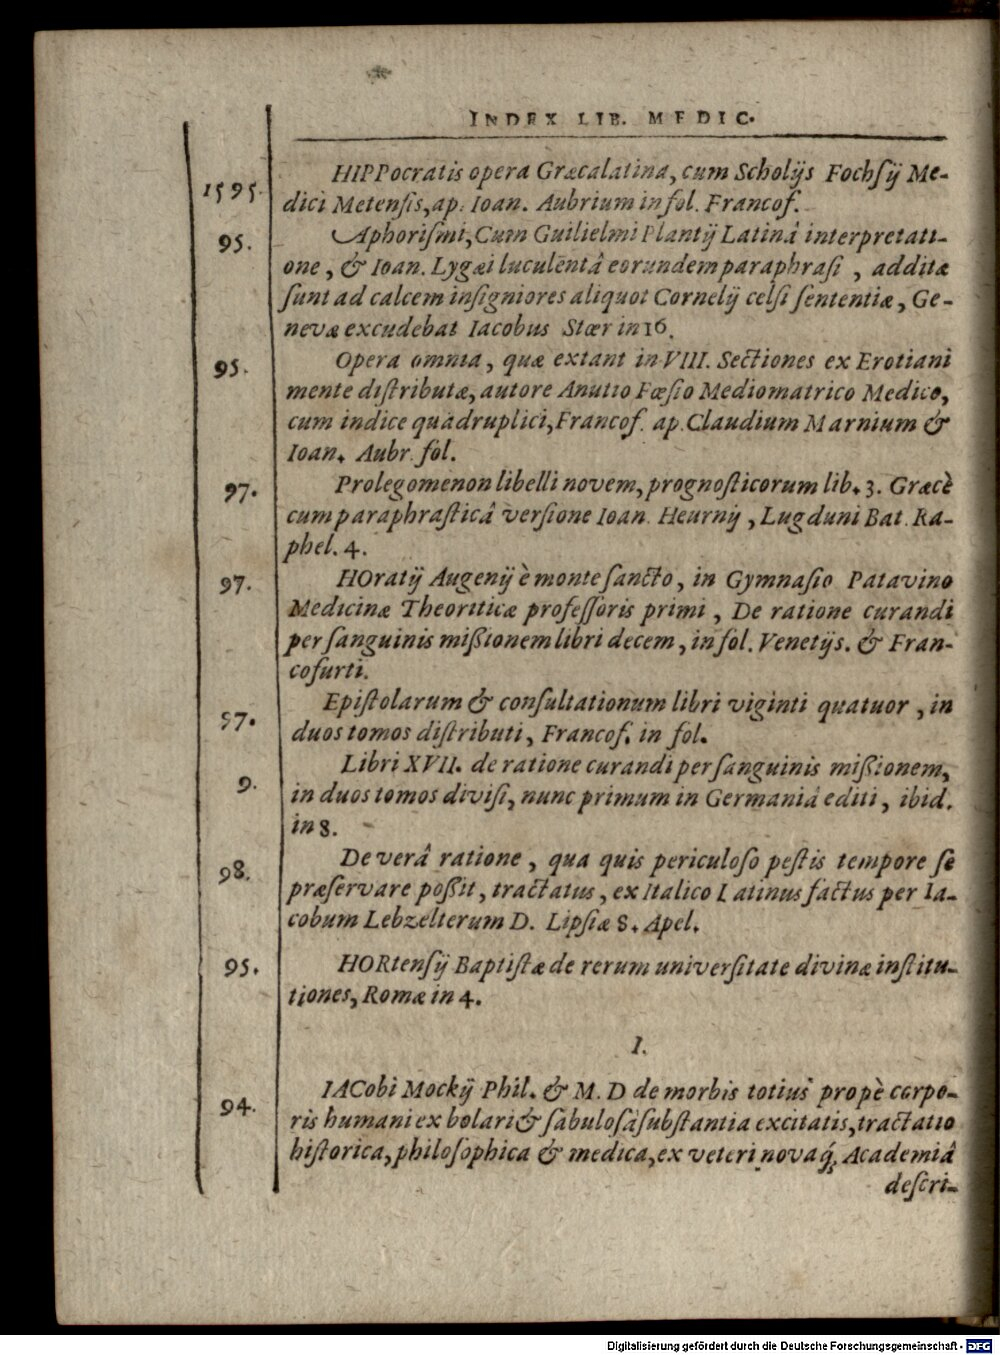 INDEX LIB. MEDIC.
1595. HIPPocratis opera Græcalatina, cum Scholijs Fochsij Me-
dici Metensis, ap. Ioan. Aubrium in fol. Francof.
95. Aphorismi, Cum Guilielmi Plantij Latinâ interpretati-
one, & Ioan. Lygæi luculentâ eorundem paraphrasi, additæ
sunt ad calcem insigniores aliquot Cornelij celsi sententiæ, Ge-
nevæ excudebat Iacobus Stœr in 16.
95. Opera omnia, quæ extant in VIII. Sectiones ex Erotiani
mente distributæ, autore Anutio Fœsio Mediomatrico Medico,
cum indice quadruplici, Francof. ap. Claudium Marnium &
Ioan. Aubr. fol.
97. Prolegomenon libelli novem, prognosticorum lib. 3. Græcè
cum paraphrasticâ versione Ioan. Heurnij, Lugduni Bat. Ra-
phel. 4.
97. HOratij Augenij è monte sancto, in Gymnasio Patavino
Medicinæ Theoriticæ professoris primi, De ratione curandi
per sanguinis mißionem libri decem, in fol. Venetijs. & Fran-
cofurti.
97. Epistolarum & consultationum libri viginti quatuor, in
duos tomos distributi, Francof. in fol.
9. Libri XVII. de ratione curandi per sanguinis mißionem,
in duos tomos divisi, nunc primum in Germaniâ editi, ibid.
in 8.
98. De verâ ratione, qua quis periculoso pestis tempore se
præservare poßit, tractatus, ex Italico Latinus factus per Ia-
cobum Lebzelterum D. Lipsiæ 8. Apel.
95. HORtensij Baptistæ de rerum universitate divinæ institu-
tiones, Romæ in 4.
I.
94. IACobi Mockij Phil. & M. D de morbis totius propè corpo-
ris humani ex bolari & sabulosà substantia excitatis, tractatio
historica, philosophica & medica, ex veteri novaq́; Academiâ
descri-
Digitalisierung gefördert durch die Deutsche Forschungsgemeinschaft - DFG